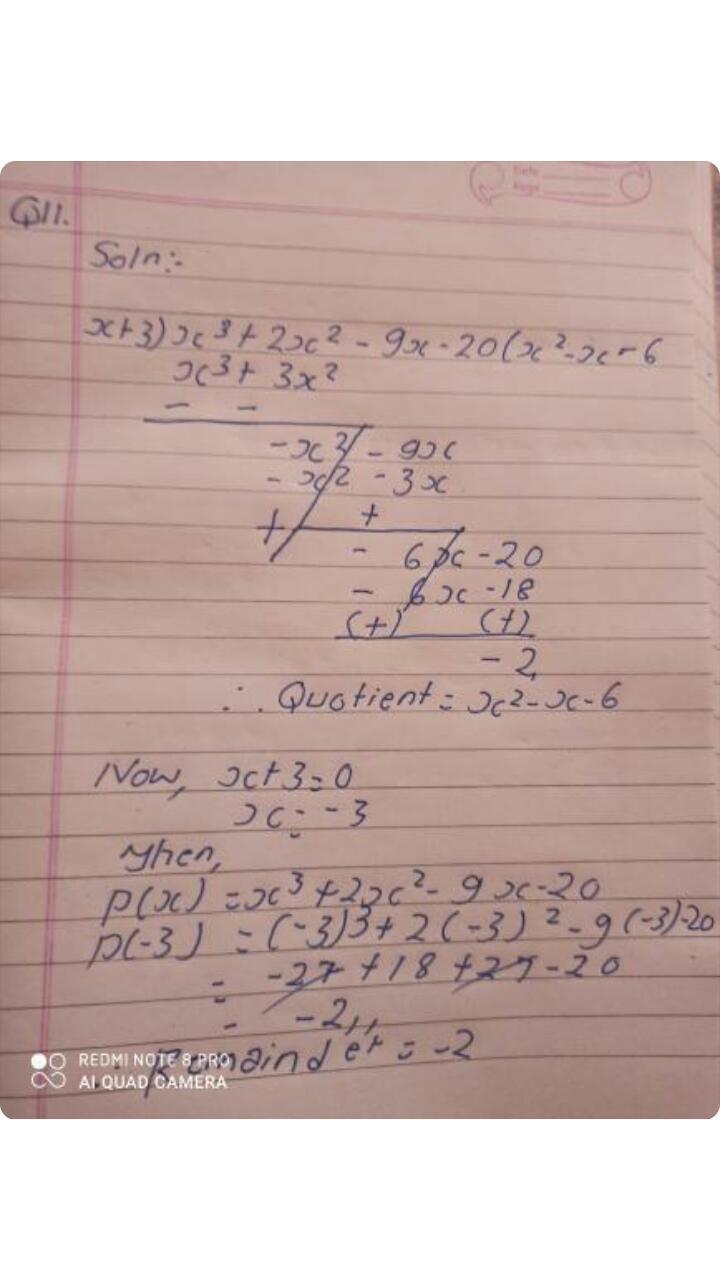 Date
Page
Q11.
Soln:-
x+3)x³+2x²-9x-20(x²-x-6
x³+3x²
- -
-x²-9x
-x²-3x
+ +
- 6x-20
- 6x-18
(+) (+)
-2
∴ Quotient = x²-x-6
Now, x+3=0
x=-3
When,
p(x) =x³+2x²-9x-20
p(-3) =(-3)3+2(-3)²-9(-3)-20
= -27+18+27-20
= -2,,
∴ Remainder = -2
REDMI NOTE 8 PRO
AI QUAD CAMERA